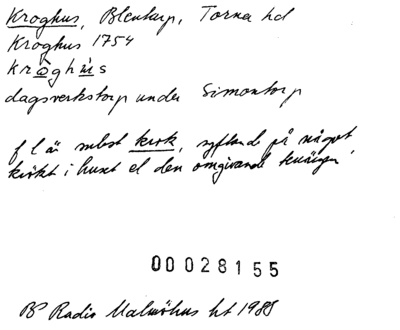 Kroghus, Blentarp, Torna hd
Kroghus 1754
krǫ̂ghu̱̇s
dagsverkstorp under Simontorp
f l är subst krok, syftande på något
krökt i huset el den omgivande terrängen
00028155
BP Radio Malmöhus ht 1988